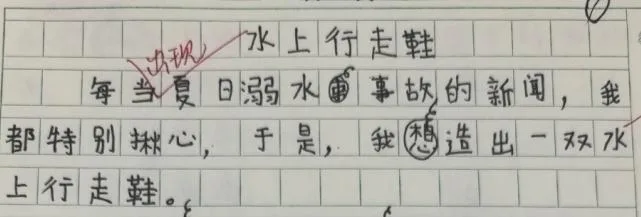 水上行走鞋
出现
每当夏日溺水事故的新闻，我
都特别揪心，于是，我想造出一双水
上行走鞋。